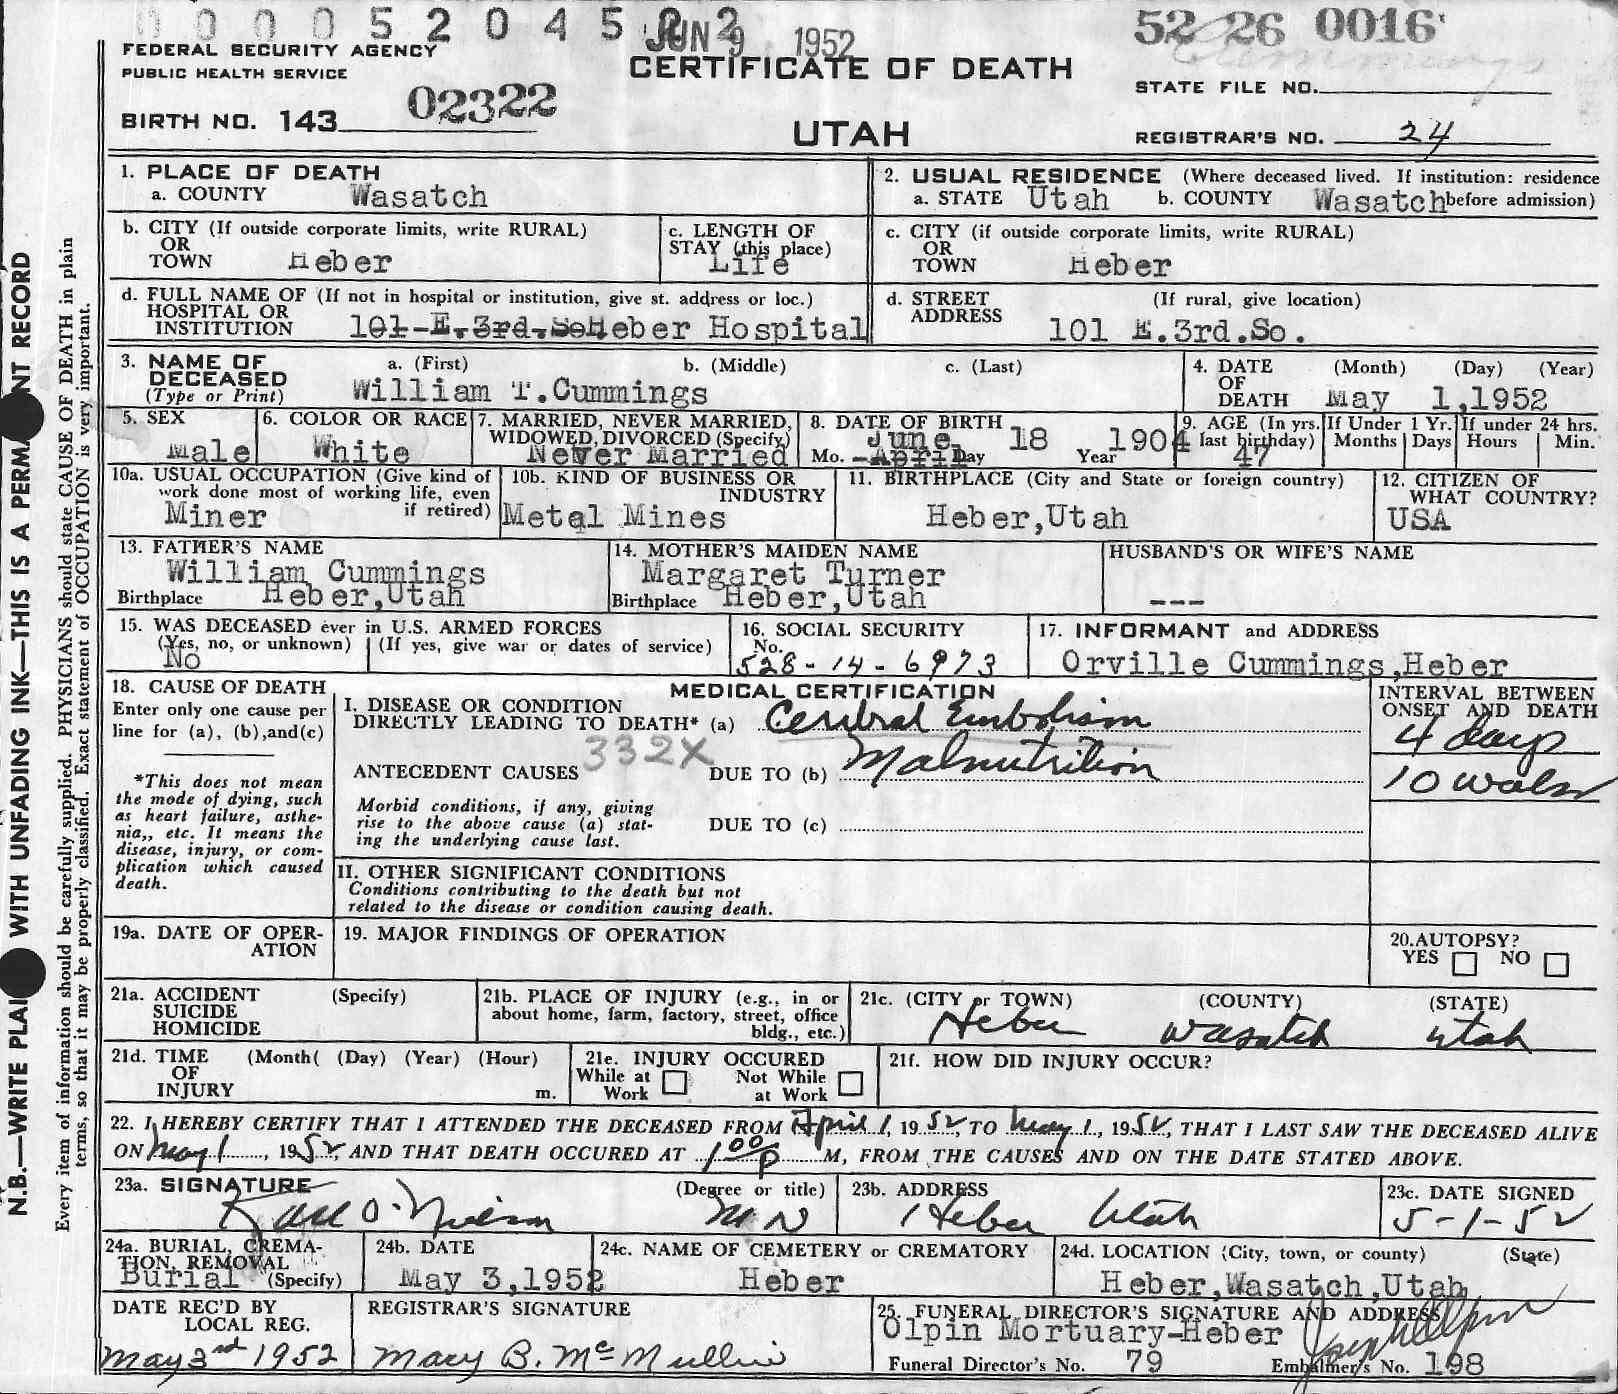 0 0 0 0 5 2 0 4 5
JUN 9 1952
52 26 0016
Cummings
FEDERAL SECURITY AGENCY
PUBLIC HEALTH SERVICE
CERTIFICATE OF DEATH
STATE FILE NO.
BIRTH NO. 143 02322
UTAH
REGISTRAR'S NO. 24
1. PLACE OF DEATH
a. COUNTY Wasatch
2. USUAL RESIDENCE (Where deceased lived. If institution: residence
a. STATE Utah b. COUNTY Wasatch before admission)
b. CITY (If outside corporate limits, write RURAL)
OR
TOWN Heber
c. LENGTH OF
STAY (this place)
Life
c. CITY (if outside corporate limits, write RURAL)
OR
TOWN Heber
d. FULL NAME OF (If not in hospital or institution, give st. address or loc.)
HOSPITAL OR
INSTITUTION 101 E. 3rd. So Heber Hospital
d. STREET (If rural, give location)
ADDRESS
101 E.3rd.So.
3. NAME OF a. (First) b. (Middle) c. (Last)
DECEASED
(Type or Print) William T.Cummings
4. DATE (Month) (Day) (Year)
OF
DEATH May 1,1952
5. SEX
Male
6. COLOR OR RACE
White
7. MARRIED, NEVER MARRIED,
WIDOWED, DIVORCED (Specify)
Never Married
8. DATE OF BIRTH
June
Mo. April Day 18 Year 1904
9. AGE (In yrs.
last birthday)
47
If Under 1 Yr.
Months Days
If under 24 hrs.
Hours Min.
10a. USUAL OCCUPATION (Give kind of
work done most of working life, even
if retired)
Miner
10b. KIND OF BUSINESS OR
INDUSTRY
Metal Mines
11. BIRTHPLACE (City and State or foreign country)
Heber,Utah
12. CITIZEN OF
WHAT COUNTRY?
USA
13. FATHER'S NAME
William Cummings
Birthplace Heber,Utah
14. MOTHER'S MAIDEN NAME
Margaret Turner
Birthplace Heber,Utah
HUSBAND'S OR WIFE'S NAME
---
15. WAS DECEASED ever in U.S. ARMED FORCES
(Yes, no, or unknown) (If yes, give war or dates of service)
No
16. SOCIAL SECURITY
No.
528-14-6973
17. INFORMANT and ADDRESS
Orville Cummings,Heber
18. CAUSE OF DEATH
Enter only one cause per
line for (a), (b),and(c)
*This does not mean
the mode of dying, such
as heart failure, asthe-
nia,, etc. It means the
disease, injury, or com-
plication which caused
death.
MEDICAL CERTIFICATION
I. DISEASE OR CONDITION
DIRECTLY LEADING TO DEATH* (a) Cerebral Embolism
332X
ANTECEDENT CAUSES DUE TO (b) Malnutrition
Morbid conditions, if any, giving
rise to the above cause (a) stat-
ing the underlying cause last.
DUE TO (c)
II. OTHER SIGNIFICANT CONDITIONS
Conditions contributing to the death but not
related to the disease or condition causing death.
INTERVAL BETWEEN
ONSET AND DEATH
4 days
10
19a. DATE OF OPER-
ATION
19. MAJOR FINDINGS OF OPERATION
20.AUTOPSY?
YES NO
21a. ACCIDENT (Specify)
SUICIDE
HOMICIDE
21b. PLACE OF INJURY (e.g., in or
about home, farm, factory, street, office
bldg., etc.)
21c. (CITY or TOWN) (COUNTY) (STATE)
Heber Wasatch Utah
21d. TIME (Month( (Day) (Year) (Hour)
OF
INJURY m.
21e. INJURY OCCURED
While at Not While
Work at Work
21f. HOW DID INJURY OCCUR?
22. I HEREBY CERTIFY THAT I ATTENDED THE DECEASED FROM April 1, 1952, TO May 1, 1952, THAT I LAST SAW THE DECEASED ALIVE
ON May 1, 1952, AND THAT DEATH OCCURED AT 1 00 P M, FROM THE CAUSES AND ON THE DATE STATED ABOVE.
23a. SIGNATURE (Degree or title)
Karl O. Nielson M D
23b. ADDRESS
Heber Utah
23c. DATE SIGNED
5-1-52
24a. BURIAL, CREMA-
TION, REMOVAL
Burial (Specify)
24b. DATE
May 3,1952
24c. NAME OF CEMETERY or CREMATORY
Heber
24d. LOCATION (City, town, or county) (State)
Heber,Wasatch,Utah
DATE REC'D BY
LOCAL REG.
May 3rd 1952
REGISTRAR'S SIGNATURE
Mary B. McMullin
25. FUNERAL DIRECTOR'S SIGNATURE AND ADDRESS
Olpin Mortuary-Heber
Funeral Director's No. 79 Embalmer's No. 198
N.B.—WRITE PLAI WITH UNFADING INK—THIS IS A PERMA NT RECORD
Every item of information should be carefully supplied. PHYSICIANS should state CAUSE OF DEATH in plain
terms, so that it may be properly classified. Exact statement of OCCUPATION is very important.